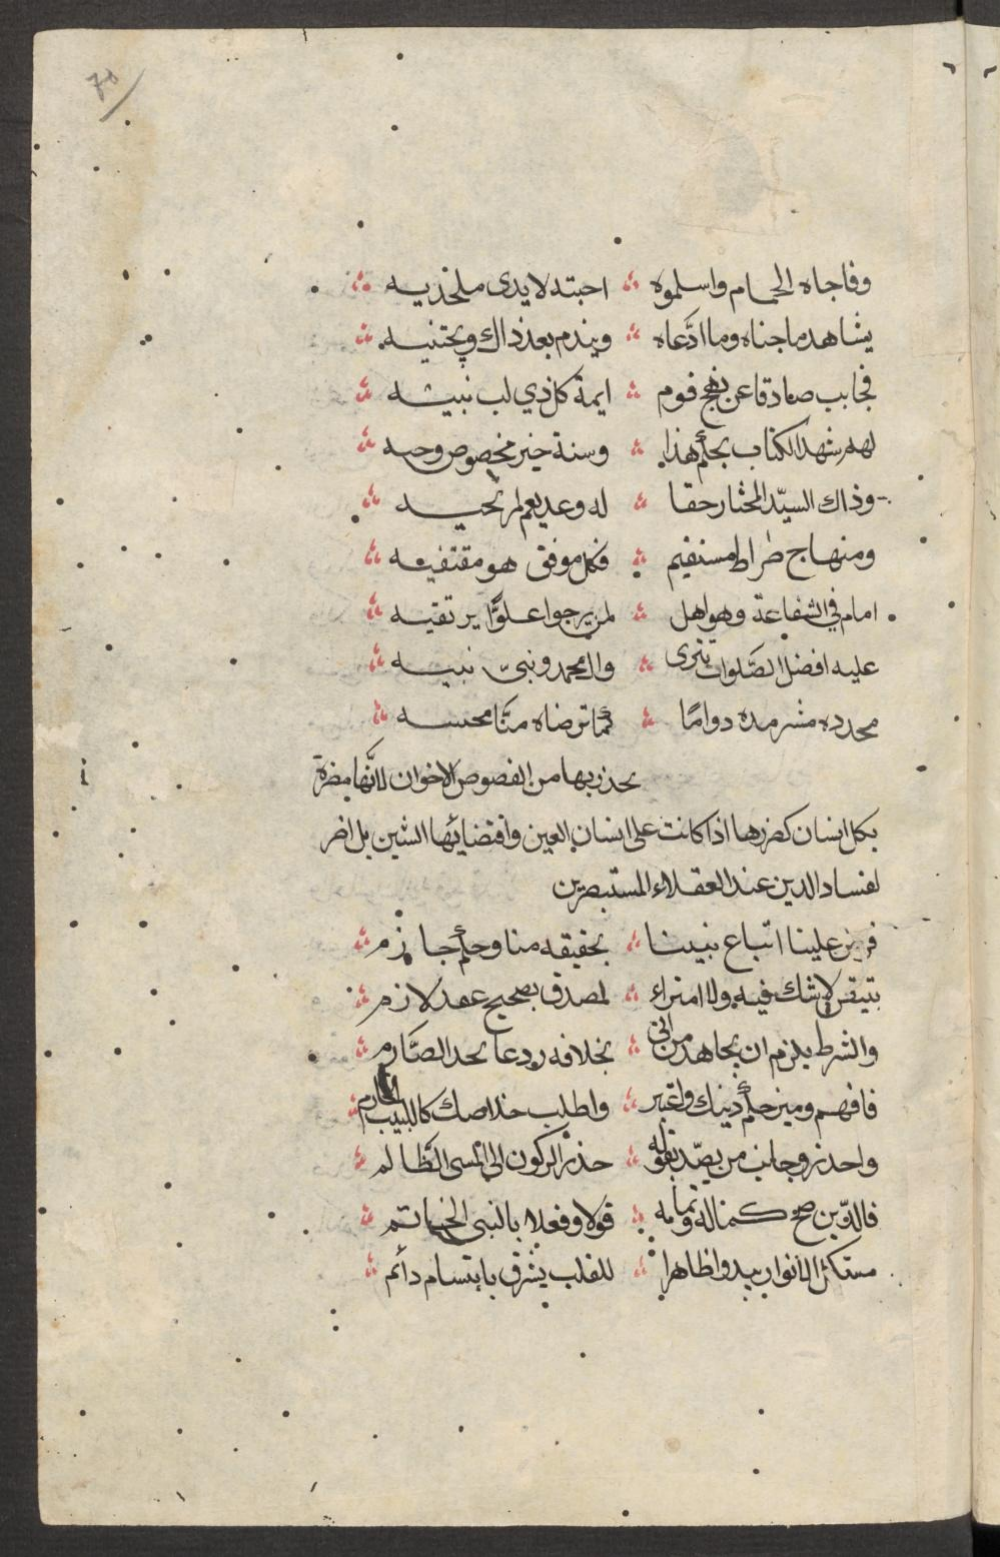 وفاجاه الحمام واسلموه احبته لايدى ملحديه
يشاهد ماجناه وما ادّعاه ويندم بعد ذاك ويجتنيه
فجانب صادقا عن نهج قوم ايمة كل ذي لب نبيه
لهم شهد الكتاب بحكم هذا وسنة خير مخصوص وجيه
وذاك السيّد المختار حقا له وعد يعم لمر
ومنهاج صراط مستقيم فكل موفق هو مقتفيه
امام في الشفاعة وهو اهل لمن يرجوا علوًّا يرتقيه
عليه افضل الصّلوات تترى وال محمد ونبىّ نبيه
مجدده مشرمدة دوامًا كما ترضاه منّا
يحذر بها من الفصوص الاخوان لانّها مضرة
بكل انسان كضررها اذا كانت على انسان العين واقتضائها الشين بل اضر
لفساد الدين عند العقلاء المستبصرين
فرض علينا اتباع نبينا بحقيقه منا وحكم جازم
بتيقن لاشك فيه ولا امتراء لمصدق بصحيح عقد لازم
والشرط يلزم ان يجاهد من اتى بخلافه ردعا بحد الصّارم
فافهم وميز حكم دينك واعتبر واطلب خلاصك كاللبيب الحازم
واحذر وجانب من يصد بقوله حذر الركون الى المسى الظّالم
فالدّين صح كماله وتمامه قولا وفعلا بالنبى الخاتم
مستكمل الانوار يبدوا ظاهرا للقلب يشرق بابتسام دائم